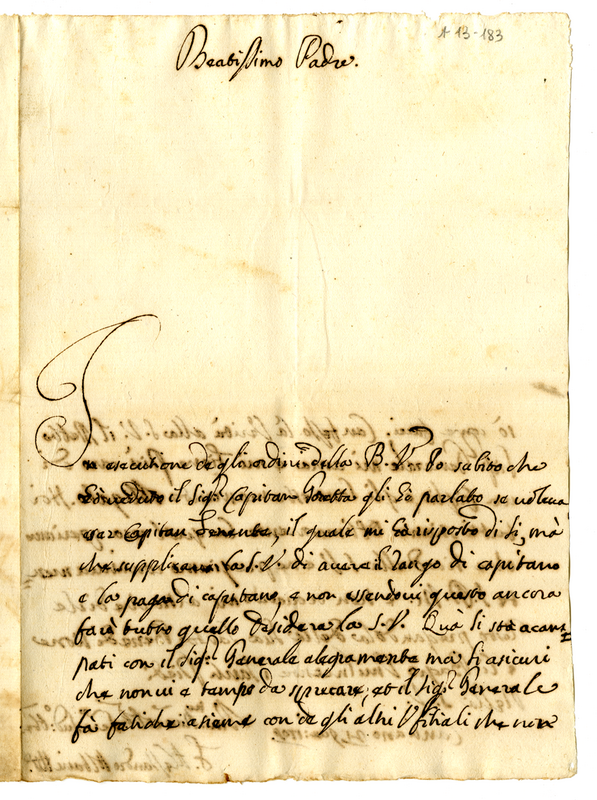 1-13-183
Beatissimo Padre.
In esecutione de gl'ordini della B. V. ho subito che
ho veduto il Sig.r Capitan gli ho parlato se voleva
esser capitan Tenente, il quale mi ha risposto di si, mà
che supplicava la S. V. di avere il rango di capitano
e la paga di capitano, e non essendovi questo ancora
farà tutto quello desidera la S. V. Quà si stà acam=
pati con il Sig.r Generale alegramente ma si asicuri
che non vi e tempo da sprecare, et il Sig.r Generale
fà fatiche asieme con de gli altri Uffitiali che non